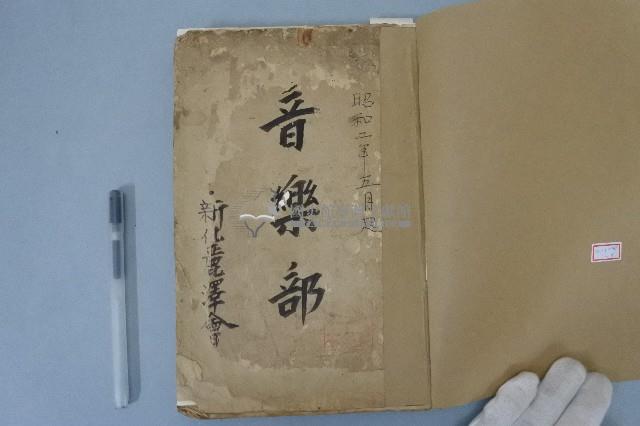 昭和二年五月起
音樂部
新化麗澤會